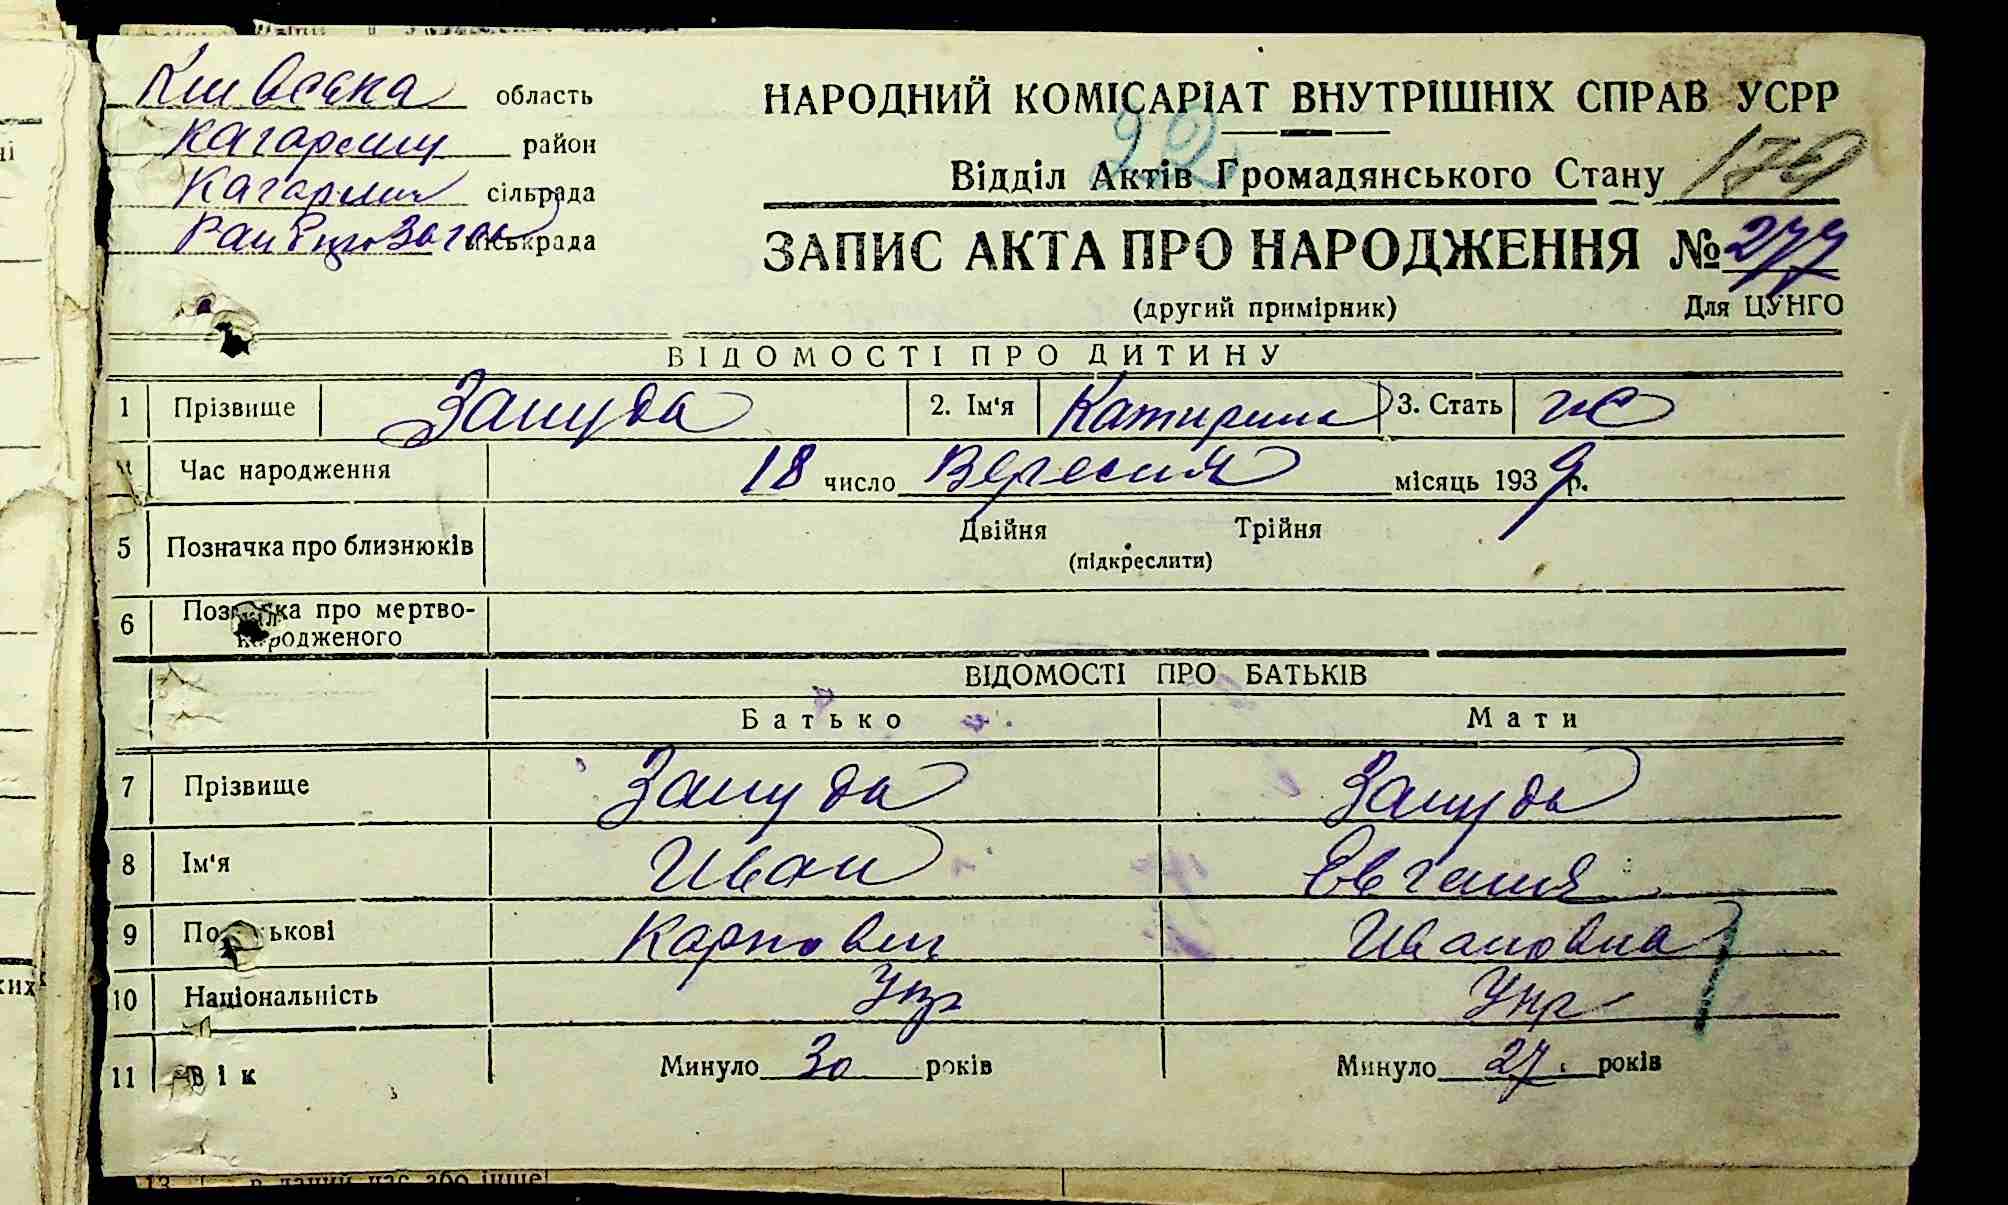 Київська область
Кагарлиц район
Кагарлик сільрада
міськрада
НАРОДНИЙ КОМІСАРІАТ ВНУТРІШНІХ СПРАВ УСРР
22
Відділ Актів Громадянського Стану 179
ЗАПИС АКТА ПРО НАРОДЖЕННЯ № 277
(другий примірник) Для ЦУНГО
ВІДОМОСТІ ПРО ДИТИНУ
1 Прізвище Зануда 2. Ім'я Катирина 3. Стать ж
Час народження 18 число Вересня місяць 1939 р.
5 Позначка про близнюків Двійня Трійня
(підкреслити)
6 Позначка про мертво-
народженого
ВІДОМОСТІ ПРО БАТЬКІВ
Батько Мати
7 Прізвище Зануда Зануда
8 Ім'я Иван Евгения
9 По батькові Карпович Ивановна
10 Національність Укр Укр
11 Вік Минуло 30 років Минуло 27 років
13 в даний час або інше